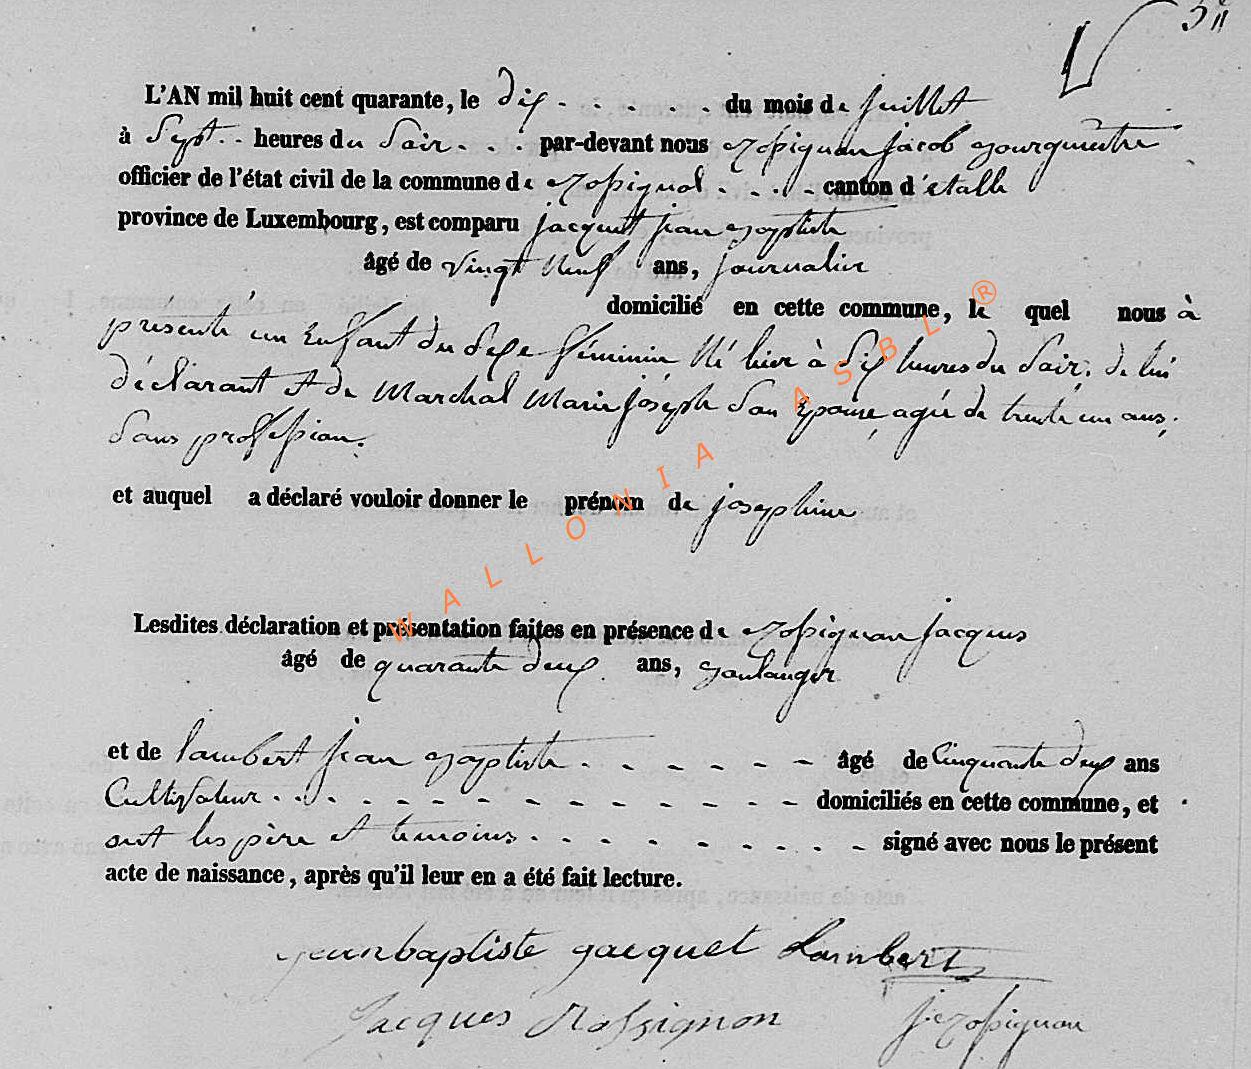 L'AN mil huit cent quarante, le dix . . . . . . du mois de juillet
à Sept . . heures du Soir . . . par-devant nous Rossignon jacob Bourguemetre
officier de l'état civil de la commune de Rossignol . . . . canton d'étalle
province de Luxembourg, est comparu jacquet jean Baptiste
âgé de vingt Neuf ans, journalier
domicilié en cette commune, le quel nous à
presenté un Enfant du Sexe féminin Né hier à Six heures du Soir, de lui
déclarant et de Marchal Marie joséph Son Epouse, agée de trente un ans,
Sans profession.
et auquel a déclaré vouloir donner le prénom de joséphine
Lesdites déclaration et présentation faites en présence de Rossignon jacques
âgé de quarante deux ans, Boulanger
et de lambert jean Baptiste . - - - - - - âgé de Cinquante deux ans
Cultivateur . . . - - - - - - - - - - - - domiciliés en cette commune, et
ont les père et temoins . . - - - - - - - signé avec nous le présent
acte de naissance, après qu'il leur en a été fait lecture.
jeanbaptiste jacquet Lambert
Jacques Rossignon j: Rossignon
WALLONIA ASBL ®